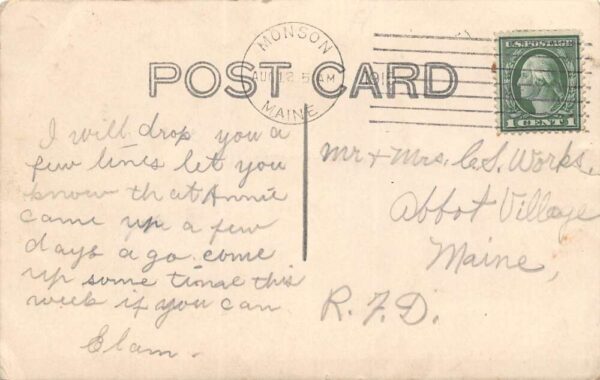 MONSON
AUG 12 5 AM 191
MAINE
U.S. POSTAGE
1 CENT 1
POST CARD
I will drop you a
few lines let you
know that Annie
came up a few
days ago come
up some time this
week if you can
Elam.
Mr + Mrs. C.S. Works,
Abbot Village
Maine,
R.F.D.